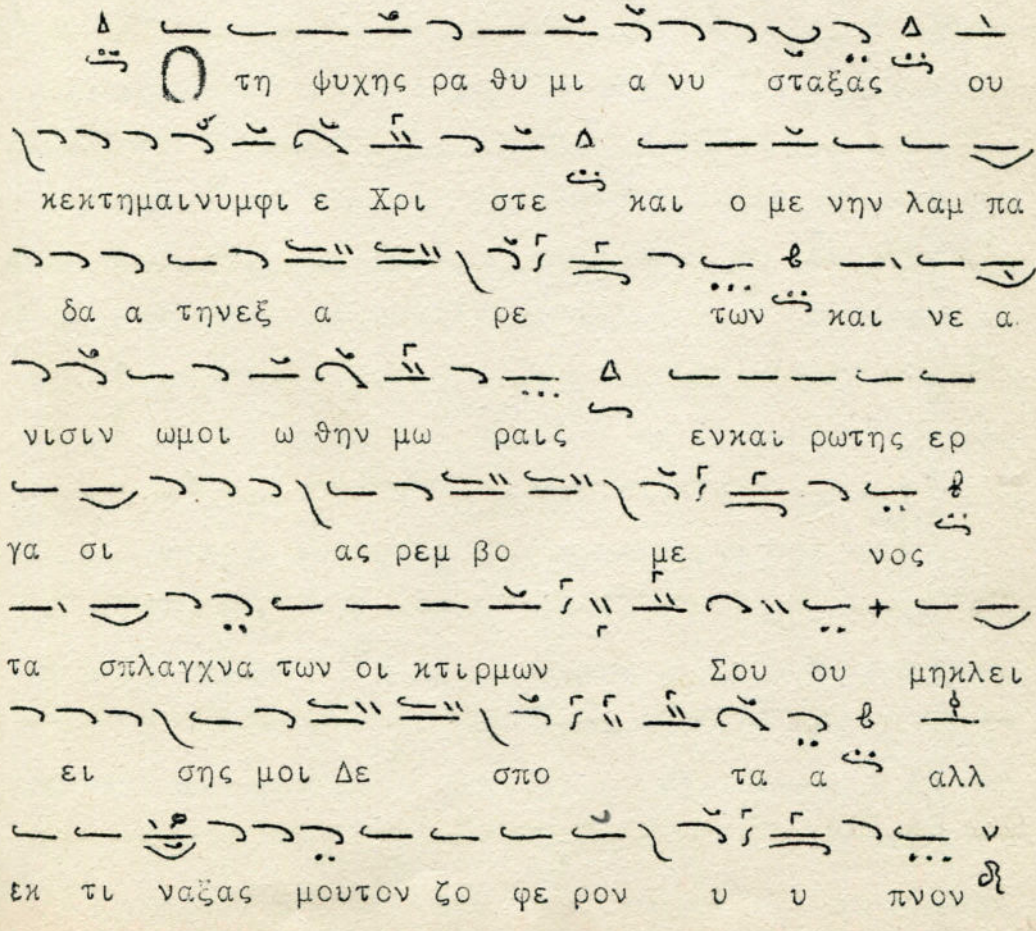 Ο τη ψυχης ρα θυ μι α νυ σταξας ου
κεκτημαινυμφι ε Χρι στε και ο με νην λαμ πα
δα α τηνεξ α ρε των και νε α
νισιν ωμοι ω θην μω ραις ενκαι ρωτης ερ
γα σι ας ρεμ βο με νος
τα σπλαγχνα των οι κτιρμων Σου ου μηκλει
ει σης μοι Δε σπο τα α αλλ
εκ τι ναξας μουτον ζο φε ρον υ υ πνον